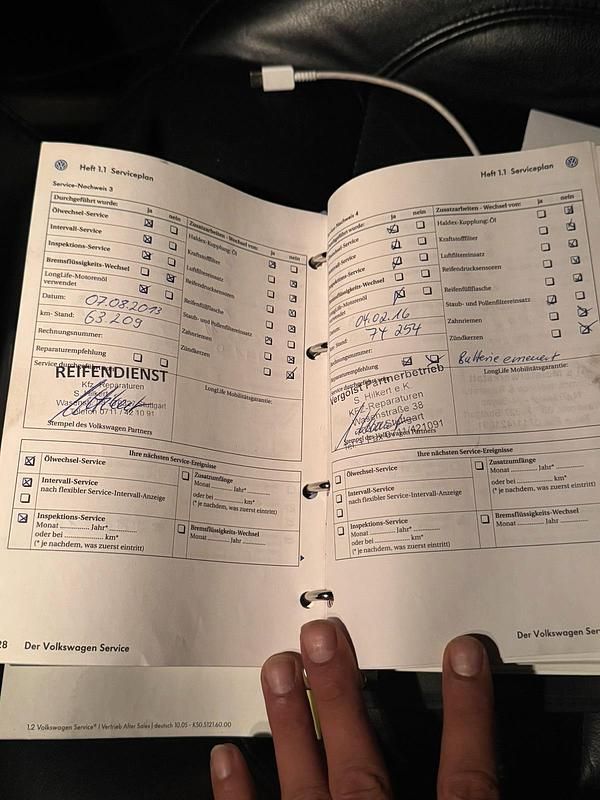 Heft 1.1 Serviceplan
Service-Nachweis 3
Durchgeführt wurde: ja nein
Ölwechsel-Service
Intervall-Service
Inspektions-Service
Bremsflüssigkeits-Wechsel
LongLife-Motorenöl
verwendet
Datum: 07.08.2013
km- Stand: 63 209
Rechnungsnummer:
Reparaturempfehlung
Zusatzarbeiten - Wechsel von: ja nein
Haldex-Kupplung: Öl
Kraftstofffilter
Luftfiltereinsatz
Reifendrucksensoren
Reifenfüllflasche
Staub- und Pollenfiltereinsatz
Zahnriemen
Zündkerzen
Service durchgeführt
REIFENDIENST
Kfz-Reparaturen
Telefon 0711/421091
Stempel des Volkswagen Partners
LongLife Mobilitätsgarantie:
Ihre nächsten Service-Ereignisse
Ölwechsel-Service
Intervall-Service
nach flexibler Service-Intervall-Anzeige
Inspektions-Service
Monat ............ Jahr* ............
oder bei ............ km*
(* je nachdem, was zuerst eintritt)
Zusatzumfänge
Monat ............ Jahr* ............
oder bei ............ km*
(* je nachdem, was zuerst eintritt)
Bremsflüssigkeits-Wechsel
Monat ............ Jahr ............
28 Der Volkswagen Service
1.2 Volkswagen Service® I Vertrieb After Sales I deutsch 10.05 - K50.5121.60.00
Heft 1.1 Serviceplan
-Nachweis 4
wurde: ja nein
-Service
-Service
-Service
-Wechsel
LongLife-Motorenöl
verwendet
Datum: 04.02.16
km- Stand: 74 254
Rechnungsnummer:
Reparaturempfehlung
Zusatzarbeiten - Wechsel von: ja nein
Haldex-Kupplung: Öl
Kraftstofffilter
Luftfiltereinsatz
Reifendrucksensoren
Reifenfüllflasche
Staub- und Pollenfiltereinsatz
Zahnriemen
Zündkerzen
Batterie erneuert
Vergölst Partnerbetrieb
S. Hilkert e.K.
KFZ-Reparaturen
Wasenstraße 38
0711/421091
Stempel des Volkswagen Partners
LongLife Mobilitätsgarantie:
Ihre nächsten Service-Ereignisse
Ölwechsel-Service
Intervall-Service
nach flexibler Service-Intervall-Anzeige
Inspektions-Service
Monat ............ Jahr* ............
oder bei ............ km*
(* je nachdem, was zuerst eintritt)
Zusatzumfänge
Monat ............ Jahr* ............
oder bei ............ km*
(* je nachdem, was zuerst eintritt)
Bremsflüssigkeits-Wechsel
Monat ............ Jahr ............
Der Volkswagen